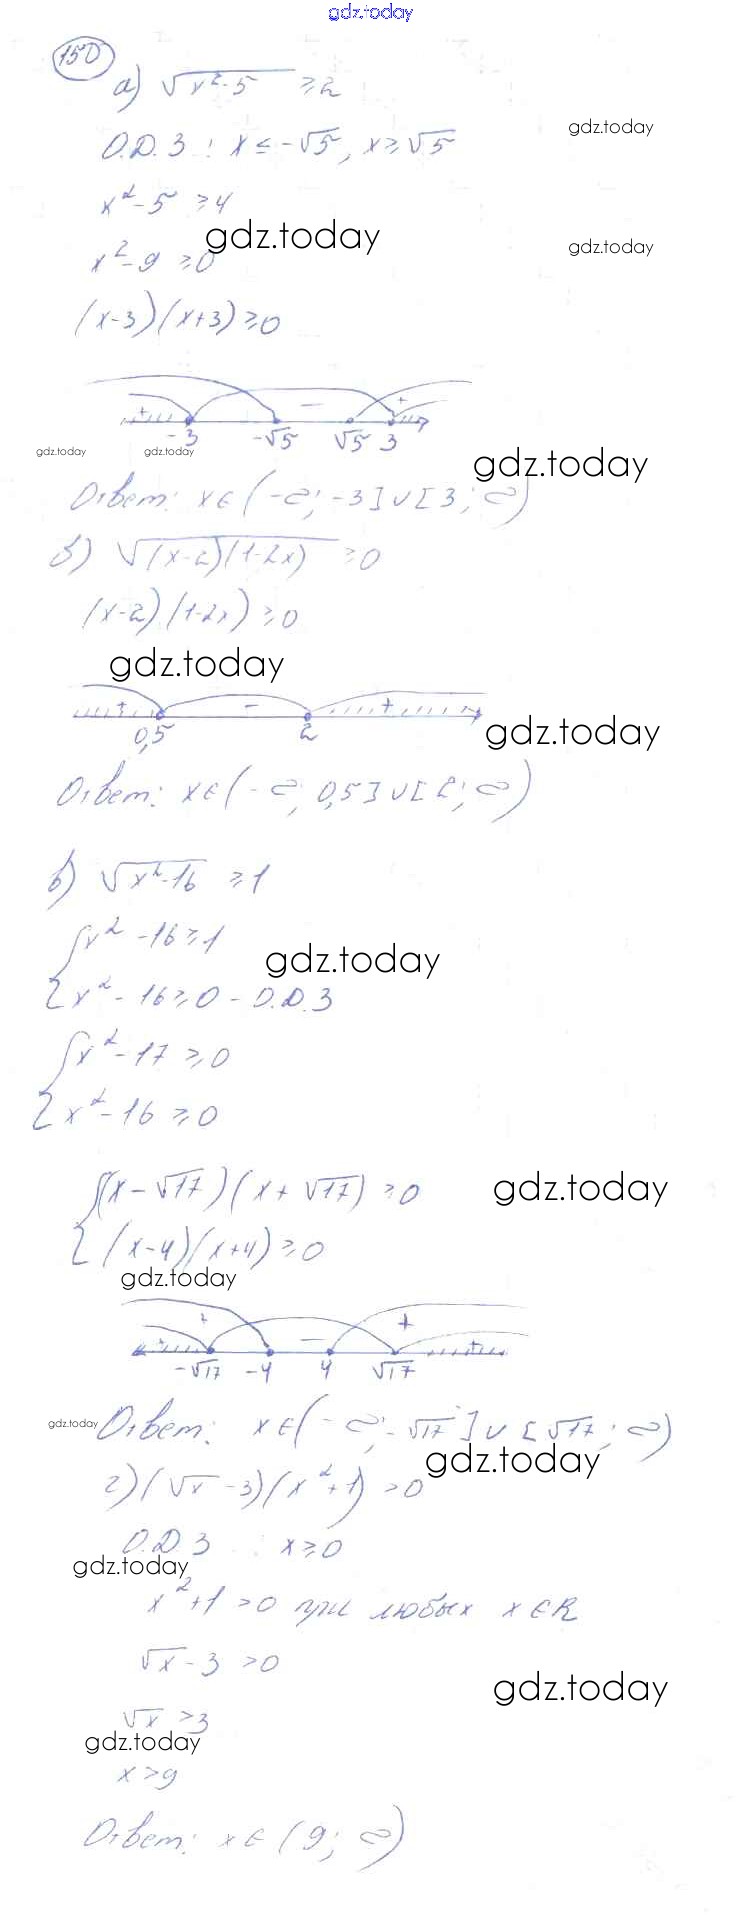 gdz.today
150
а) √x²-5 ≥2
gdz.today
О.D.З : x ≤ -√5, x ≥ √5
x²-5 ≥4
gdz.today
gdz.today
x²-9 ≥0
(x-3)(x+3) ≥0
+ - +
-3 -√5 √5 3
gdz.today gdz.today
gdz.today
Ответ: x∈(-∞; -3]∪[3; ∞)
б) √(x-2)(1-2x) ≥0
(x-2)(1-2x) ≥0
gdz.today
+ - +
0,5 2
gdz.today
Ответ: x∈(-∞; 0,5]∪[2; ∞)
в) √x²-16 ≥1
{x²-16≥1
gdz.today
{x²-16≥0 - О.D.З
{x²-17 ≥0
{x²-16 ≥0
{(x-√17)(x+√17) ≥0
gdz.today
{(x-4)(x+4) ≥0
gdz.today
+ +
+ - +
-√17 -4 4 √17
gdz.today
Ответ: x∈(-∞; -√17]∪[√17; ∞)
gdz.today
г) (√x-3)(x²+1) >0
О.D.З : x≥0
gdz.today
x²+1 >0 при любых x∈R
√x-3 >0
gdz.today
√x >3
gdz.today
x>9
Ответ: x∈(9; ∞)
gdz.today